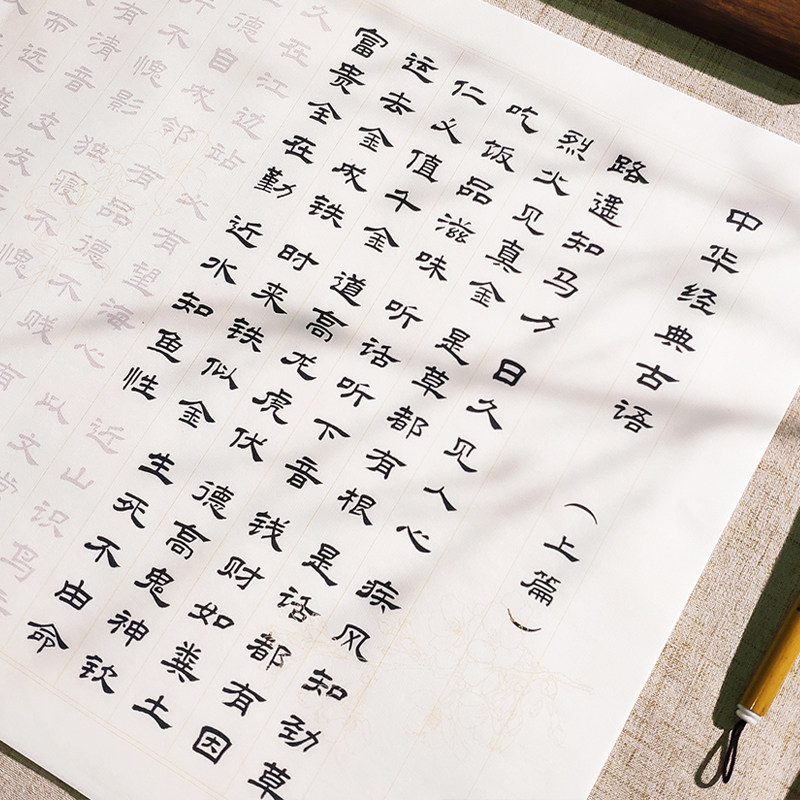 中华经典古语 （上篇）
路遥知马力 日久见人心 疾风知劲草
烈火见真金 是草都有根 是话都有因
吃饭品滋味 听话听下音 钱财如粪土
仁义值千金 道高龙虎伏 德高鬼神钦
运去金成铁 时来铁似金 生死不由命
富贵全在勤 近水知鱼性 近山识鸟音
久在江边站 必有望海心 以文
德自成邻 有品德不贱 有
不愧影 独寝不愧
有清音 交友
而远